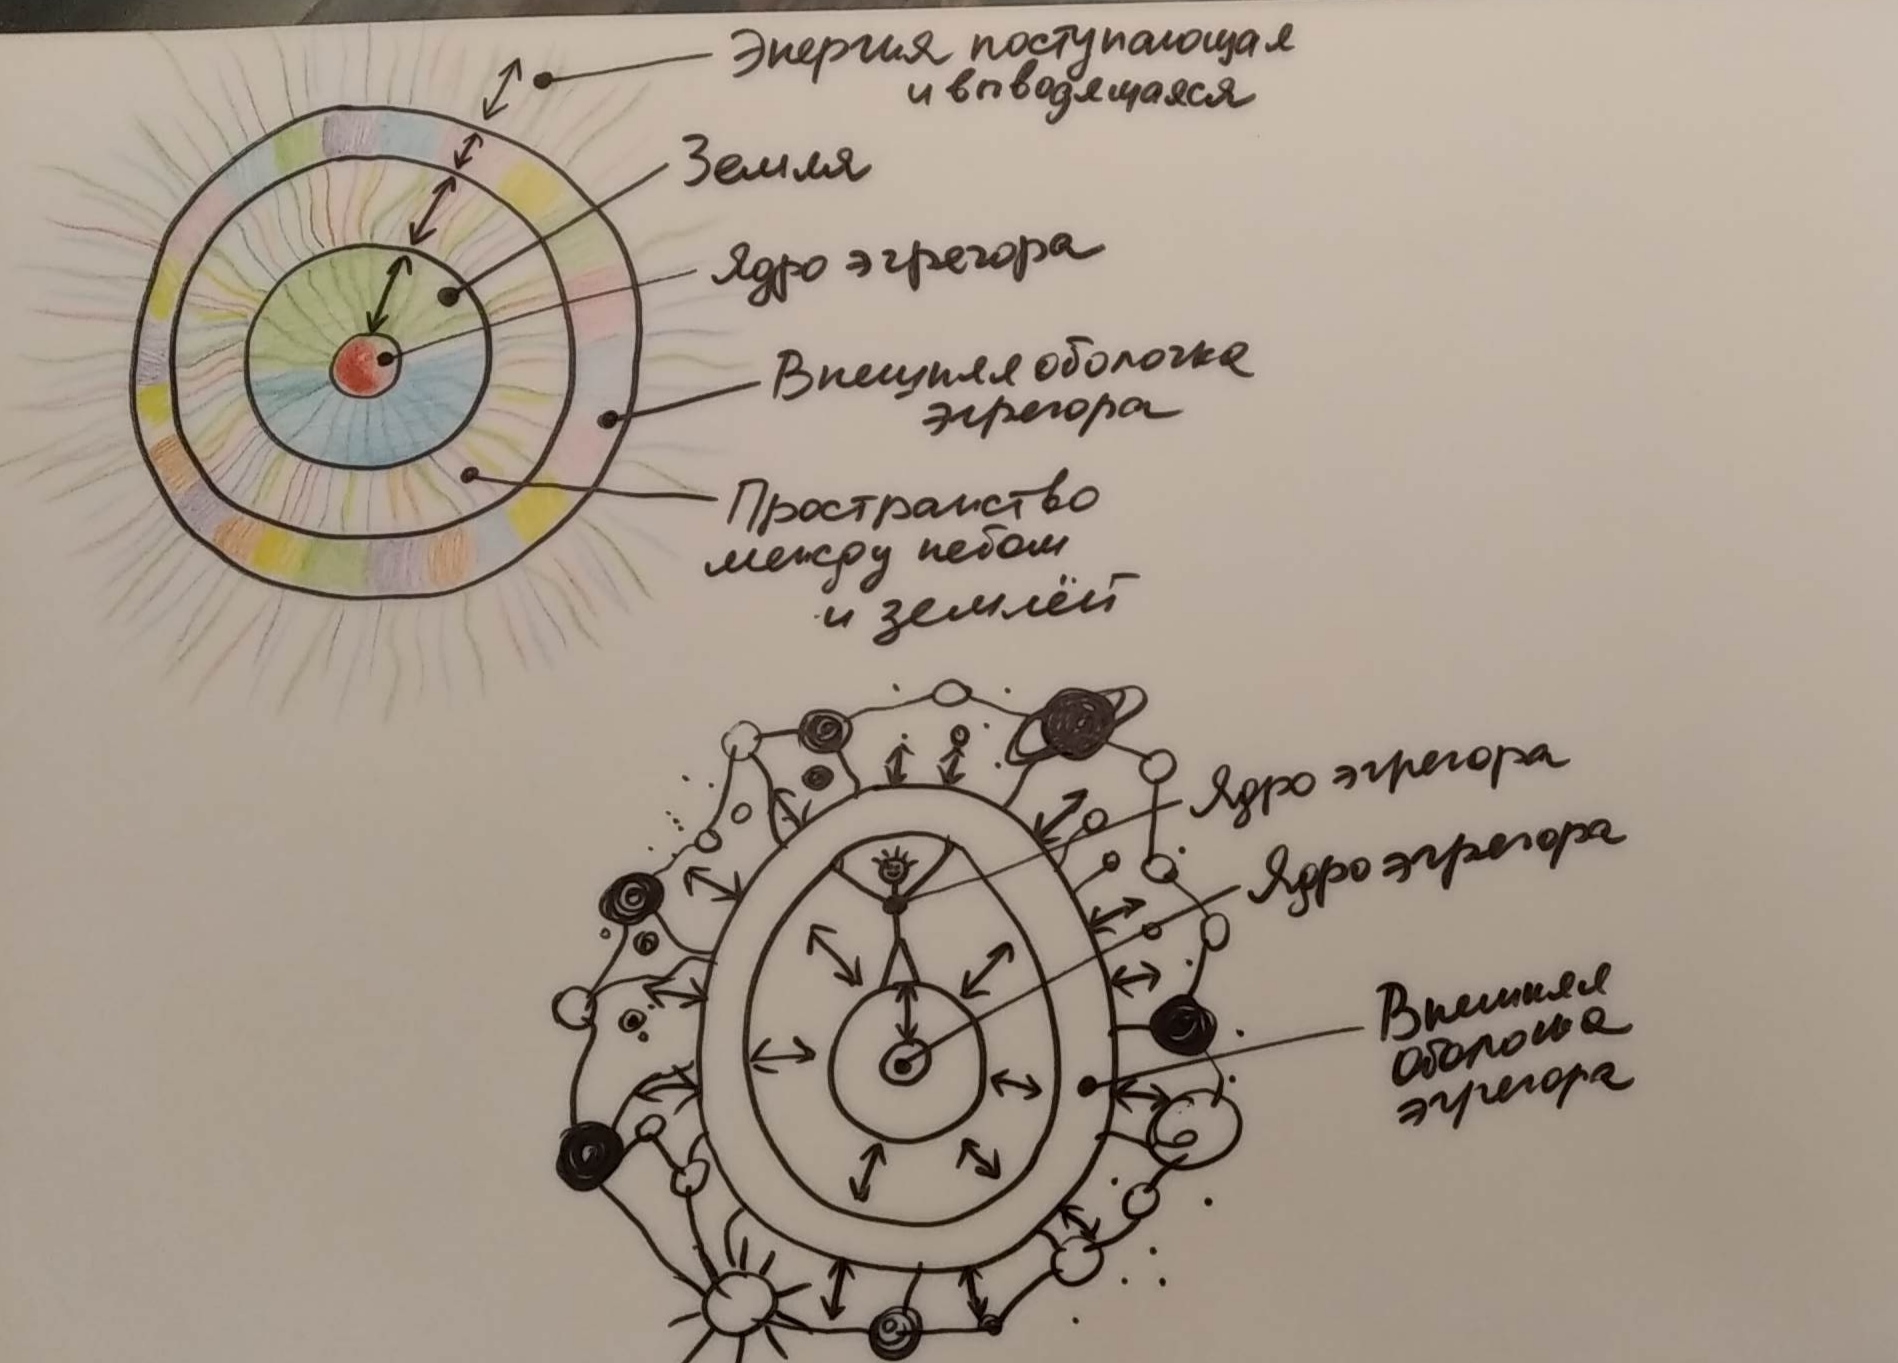 Энергия поступающая
и выводящаяся
Земля
Ядро эгрегора
Внешняя оболочка
эгрегора
Пространство
между небом
и землёй
Ядро эгрегора
Ядро эгрегора
Внешняя
оболочка
эгрегора